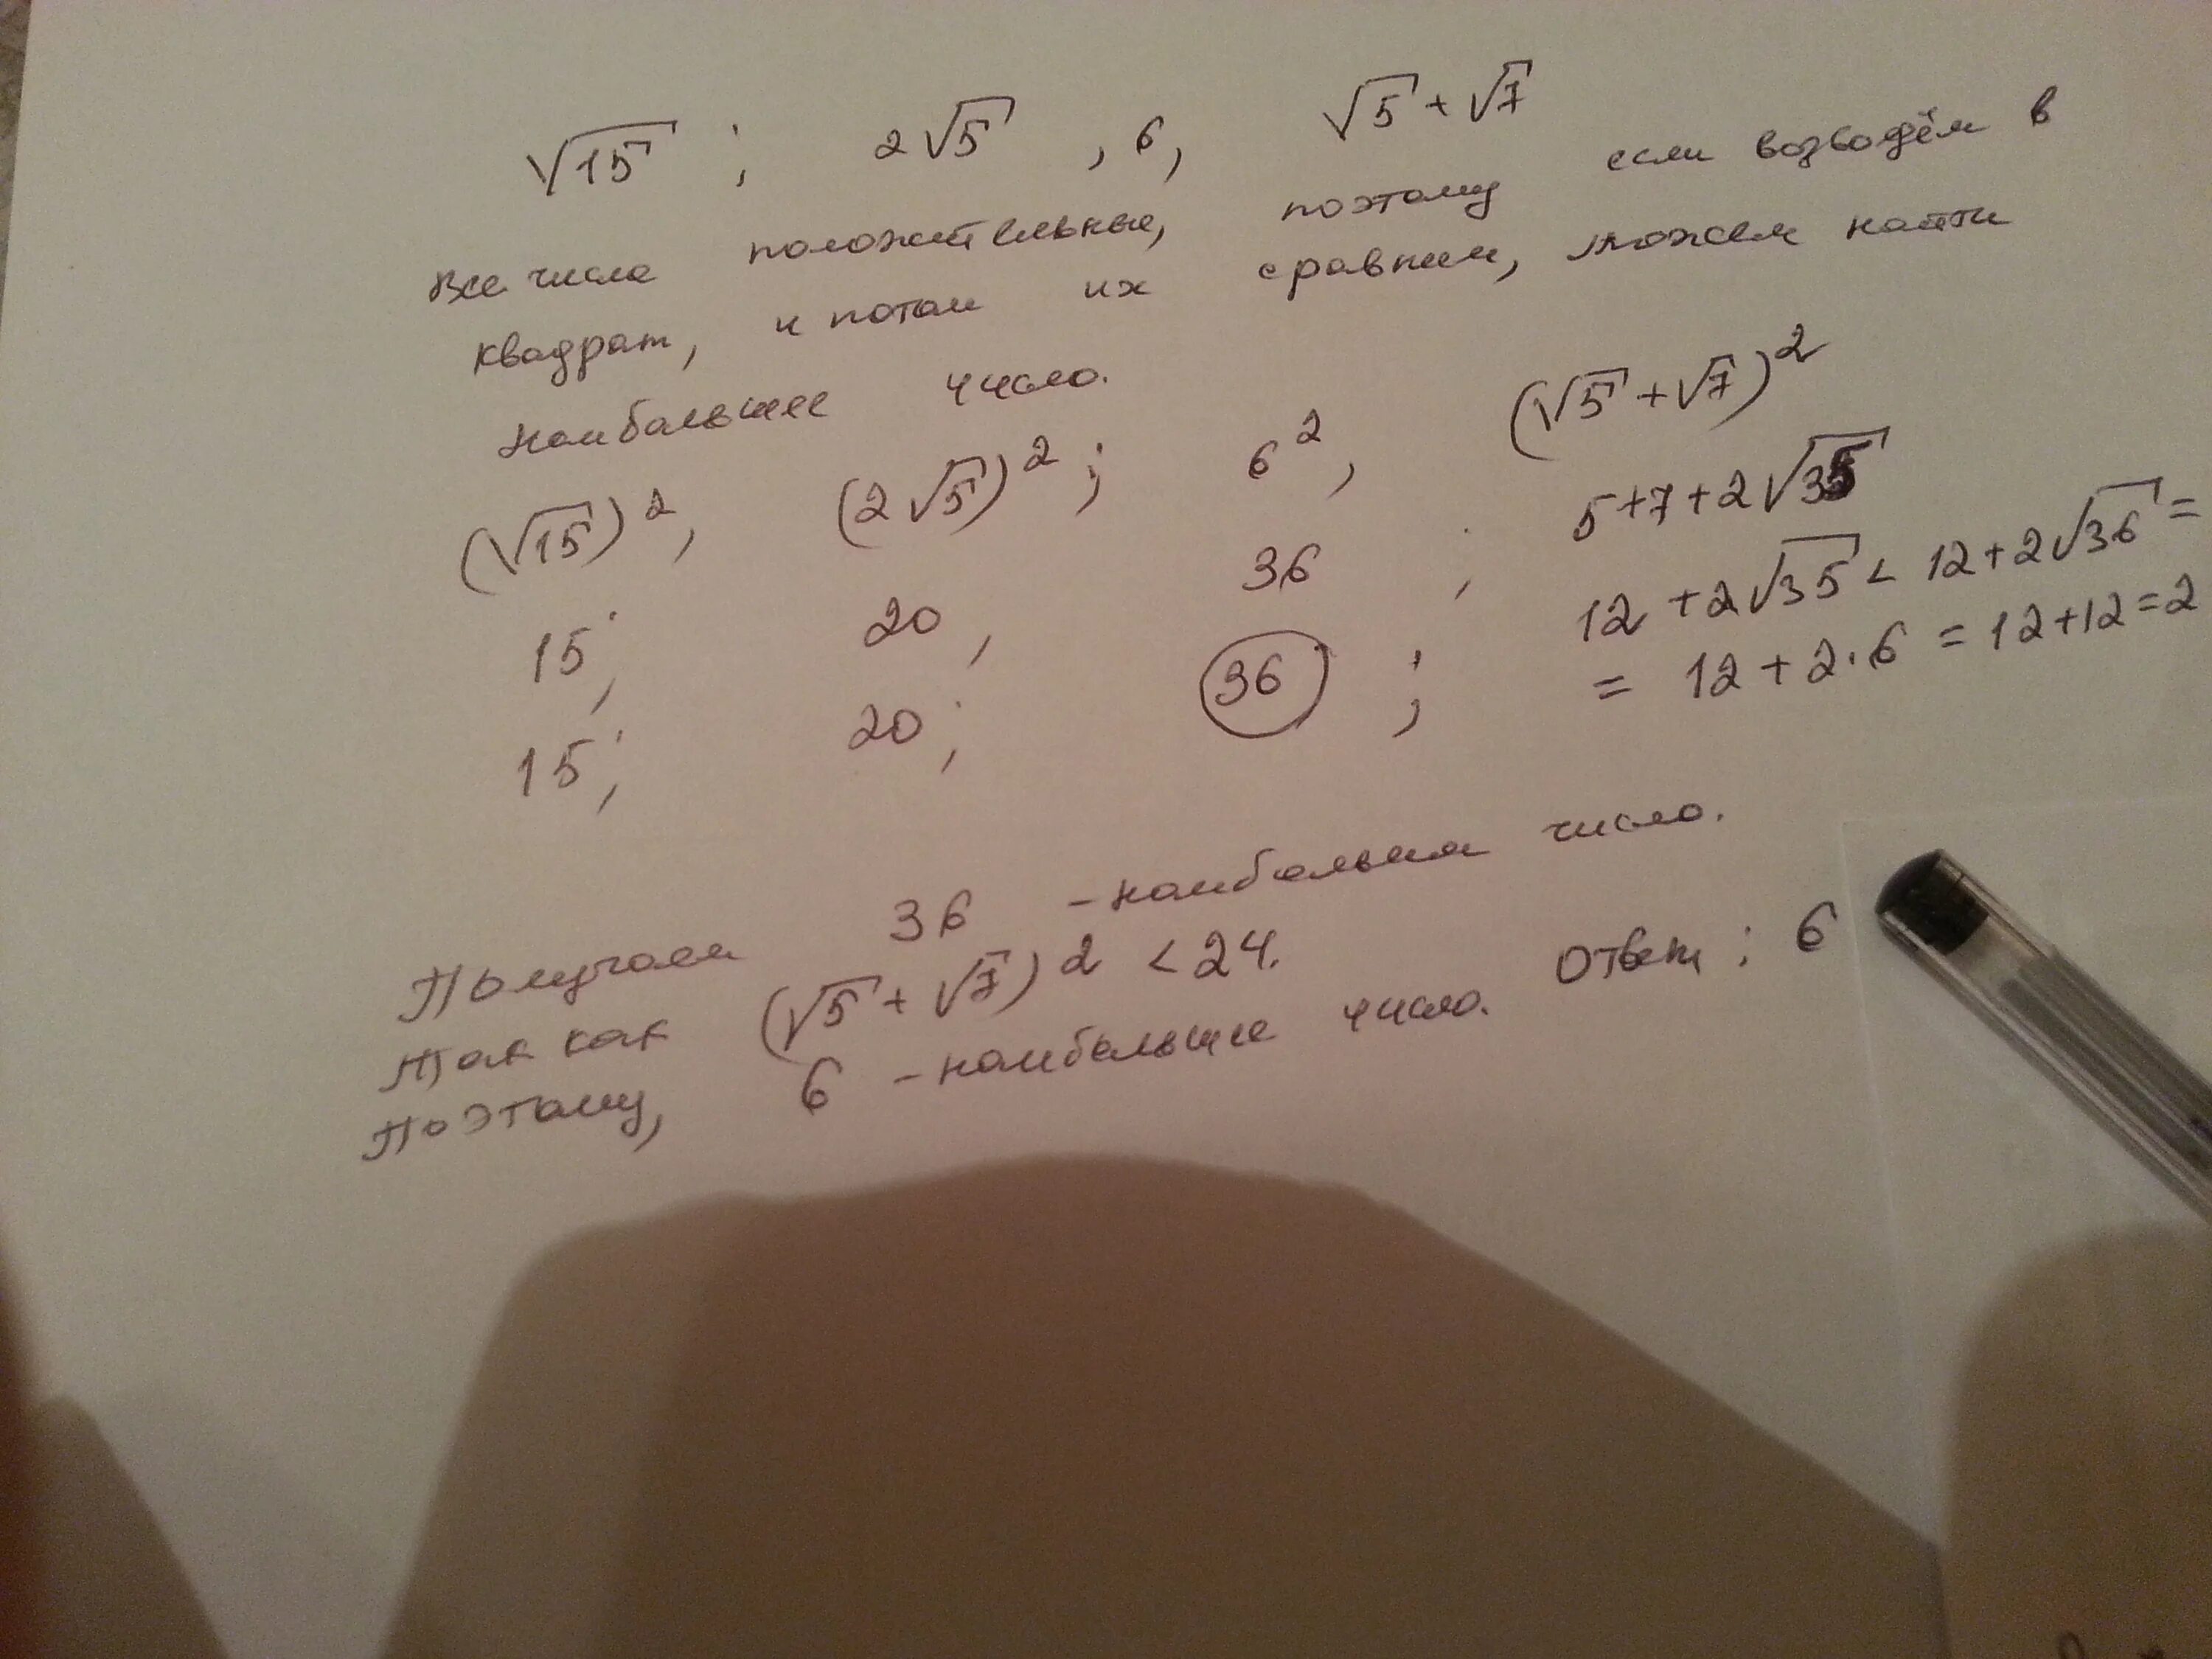 √15 ; 2√5 , 6, √5 + √7
Все числа положительные, поэтому если возводём в
квадрат, и потом их сравним, можем найти
наибольшее число.
(√15)², (2√5)²; 6², (√5 + √7)²
15; 20, 36 ; 5+7+2√35
12 + 2√35 < 12 + 2√36 =
15; 20; 36 ; = 12 + 2·6 = 12+12=2
Получаем 36 - наибольшее число.
Так как (√5 + √7)² < 24.
Поэтому, 6 - наибольшее число. Ответ: 6